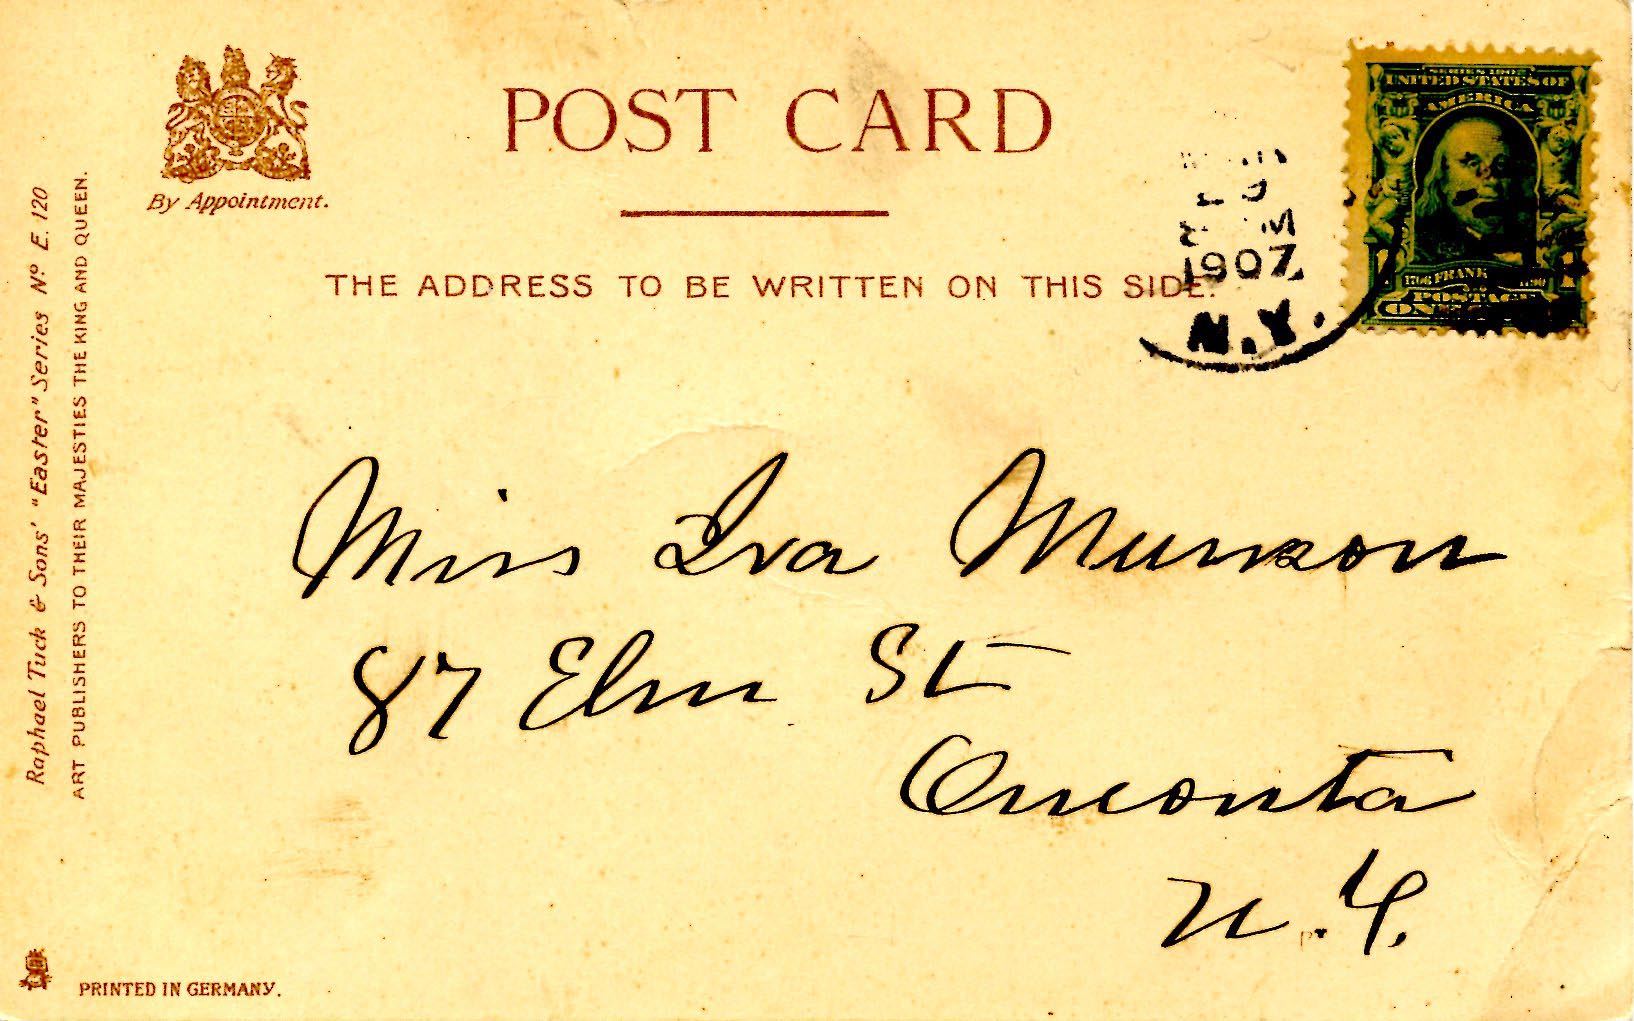 POST CARD
By Appointment.
THE ADDRESS TO BE WRITTEN ON THIS SIDE.
Raphael Tuck & Sons' "Easter" Series Nº E. 120
ART PUBLISHERS TO THEIR MAJESTIES THE KING AND QUEEN.
SERIES 1902
UNITED STATES OF
AMERICA
1706 FRANKLIN 1790
POSTAGE
ONE
1907
N.Y.
Miss Iva Munson
87 Elm St
Oneonta
N.Y.
PRINTED IN GERMANY.